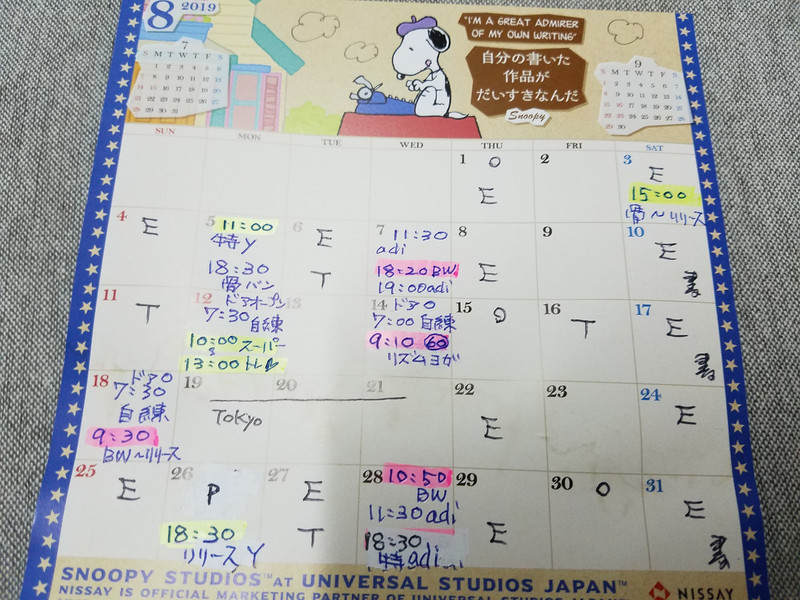 8 2019
7
S M T W T F S
1 2 3 4 5 6
7 8 9 10 11 12 13
14 15 16 17 18 19 20
21 22 23 24 25 26 27
28 29 30 31
"I'M A GREAT ADMIRER
OF MY OWN WRITING"
自分の書いた
作品が
だいすきなんだ
Snoopy
9
S M T W T F S
1 2 3 4 5 6 7
8 9 10 11 12 13 14
15 16 17 18 19 20 21
22 23 24 25 26 27 28
29 30
SUN MON TUE WED THU FRI SAT
1 O
E
2
3
E
15:00
骨〜リリース
4 E
5 11:00
特Y
18:30
骨バン
6 E
T
7 11:30
adi
18:20 BW
19:00 adi
8
E
9
10
E
11
T
12 ドアオープン
7:30
自練
10:00 スーパー
13:00 トレ
13
14 ドアO
7:00 自練
9:10 60
リズムヨガ
15 O
16
T
17
E
18 ドアO
7:30
自練
9:30
BW〜リリース
19 20 21
Tokyo
22
E
23
24
E
25
E
26
P
18:30
リリースY
27
E
T
28 10:50
BW
11:30 adi
18:30
特adi
29
E
30 O
31
E
SNOOPY STUDIOS™ AT UNIVERSAL STUDIOS JAPAN™
NISSAY IS OFFICIAL MARKETING PARTNER OF UNIVERSAL STUDIOS JAPAN
NISSAY